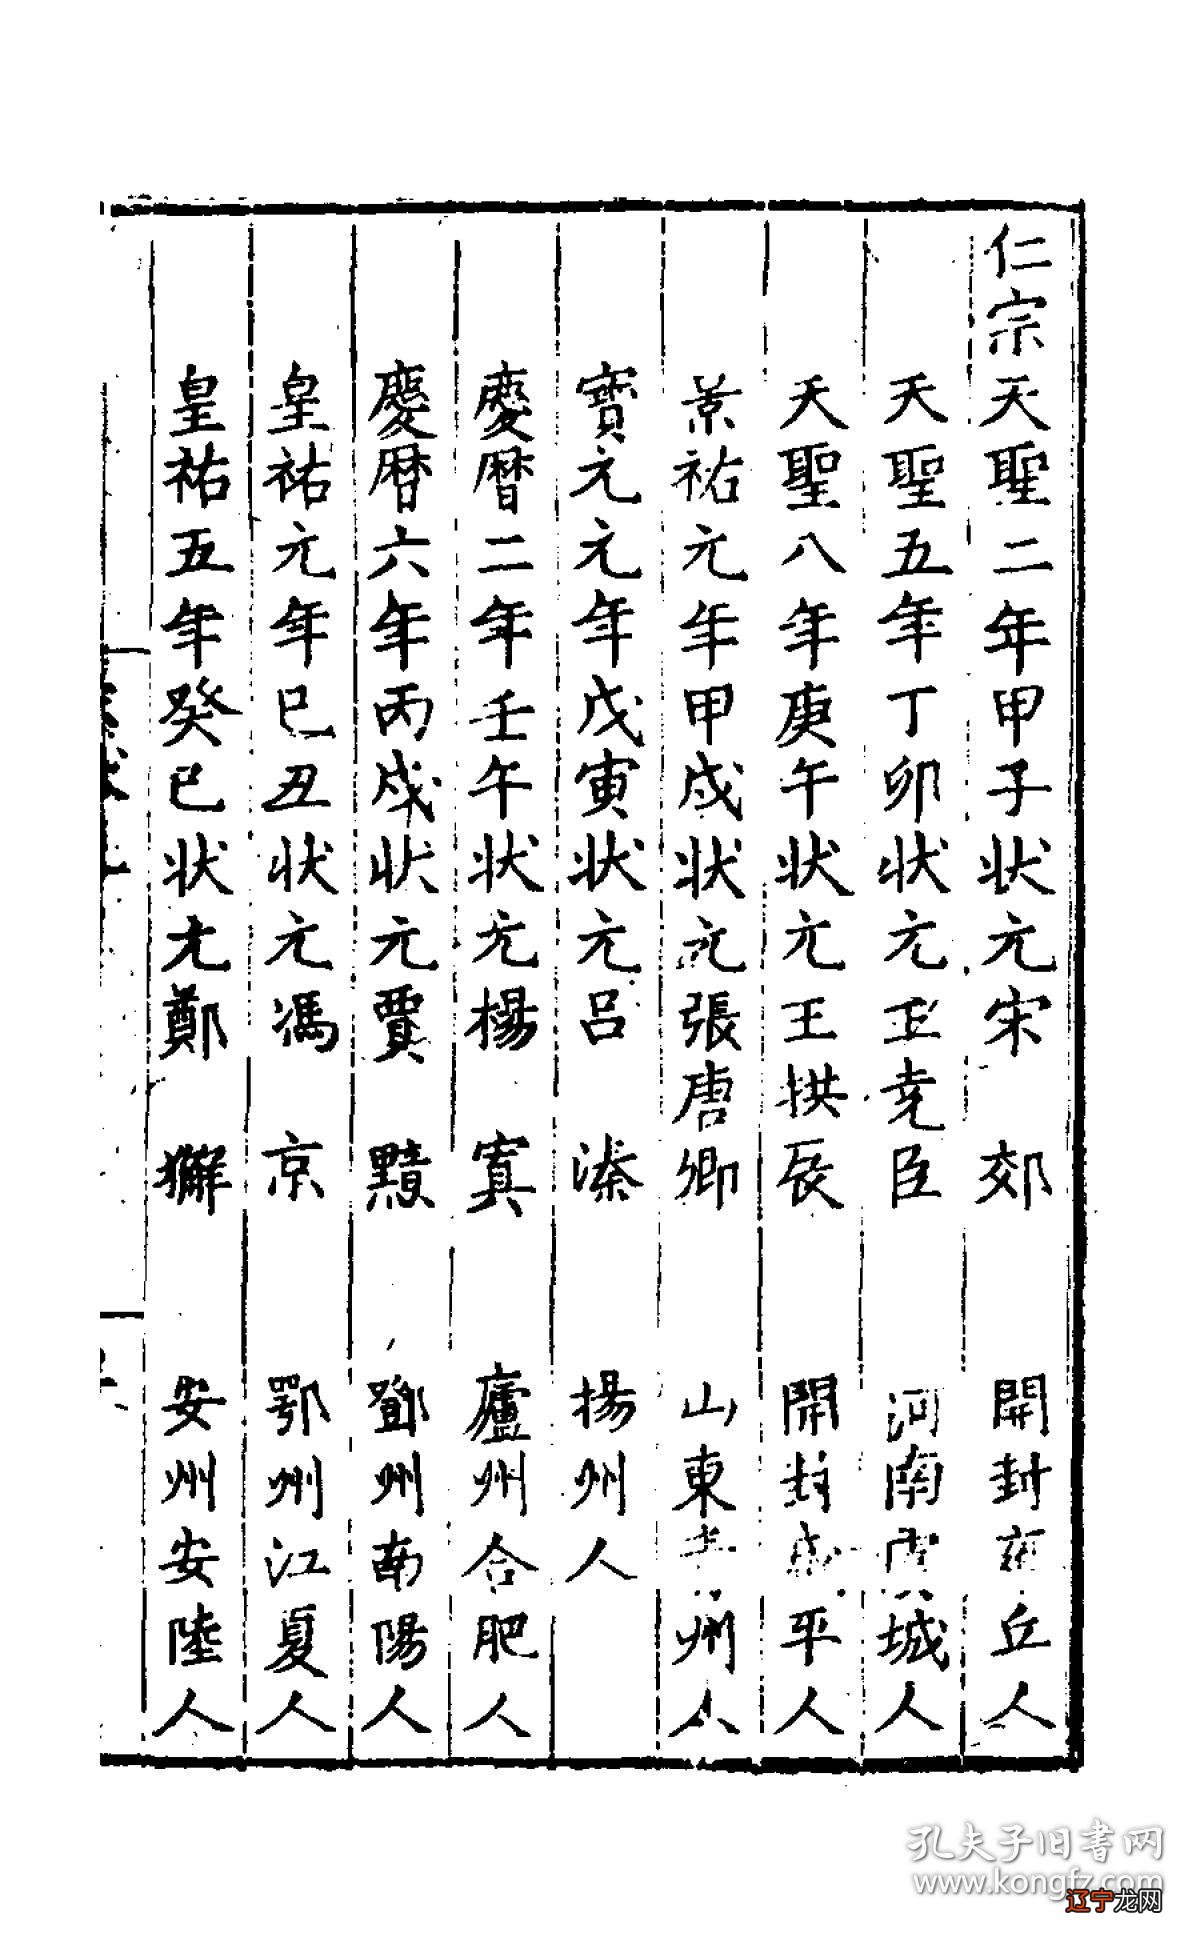 仁宗天聖二年甲子狀元宋郊開封雍丘人
天聖五年丁卯狀元王堯臣河南虞城人
天聖八年庚午狀元王拱辰開封咸平人
景祐元年甲戌狀元張唐卿山東青州人
寶元元年戊寅狀元吕溱揚州人
慶曆二年壬午狀元楊寘廬州合肥人
慶曆六年丙戌狀元賈黯鄧州南陽人
皇祐元年己丑狀元馮京鄂州江夏人
皇祐五年癸巳狀元鄭獬安州安陸人
孔夫子旧書网
www.kongfz.com
辽宁龙网